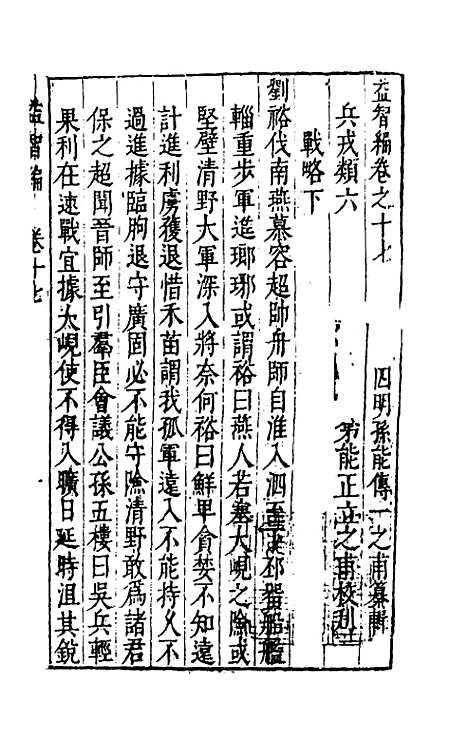 益智編卷之十七
四明孫能傳一之甫纂輯
兵戎類六
弟能正立之甫校刊
戰略下
劉裕伐南燕慕容超帥舟師自淮入泗至下邳留船艦
輜重步軍進瑯琊或謂裕曰燕人若塞大峴之險或
堅壁清野大軍深入將奈何裕曰鮮卑貪婪不知遠
計進利虜獲退惜禾苗謂我孤軍遠入不能持久不
過進據臨朐退守廣固必不能守險清野敢為諸君
保之超聞晉師至引羣臣會議公孫五樓曰吳兵輕
果利在速戰宜據大峴使不得入曠日延時沮其銳
益智編
卷十七